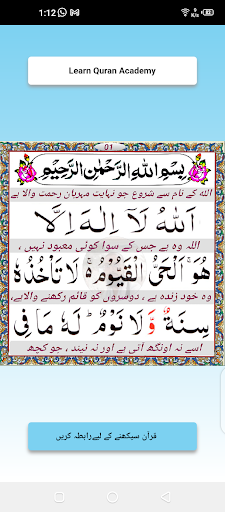 1:12
82
Learn Quran Academy
01
بِسْمِ اللهِ الرَّحْمٰنِ الرَّحِيْمِ
اللہ کے نام سے شروع جو نہایت مہربان رحمت والا ہے
اَللّٰهُ لَاۤ اِلٰهَ اِلَّا
اللہ وہ ہے جس کے سوا کوئی معبود نہیں ،
هُوَ ۚ اَلْحَیُّ الْقَیُّوْمُ ۚ لَا تَاْخُذُهٗ
وہ خود زندہ ہے ، دوسروں کو قائم رکھنے والاہے،
سِنَةٌ وَّ لَا نَوْمٌ ؕ لَهٗ مَا فِی
اسے نہ اونگھ آتی ہے اور نہ نیند ، جو کچھ
قرآن سیکھنے کے لیےرابطہ کریں